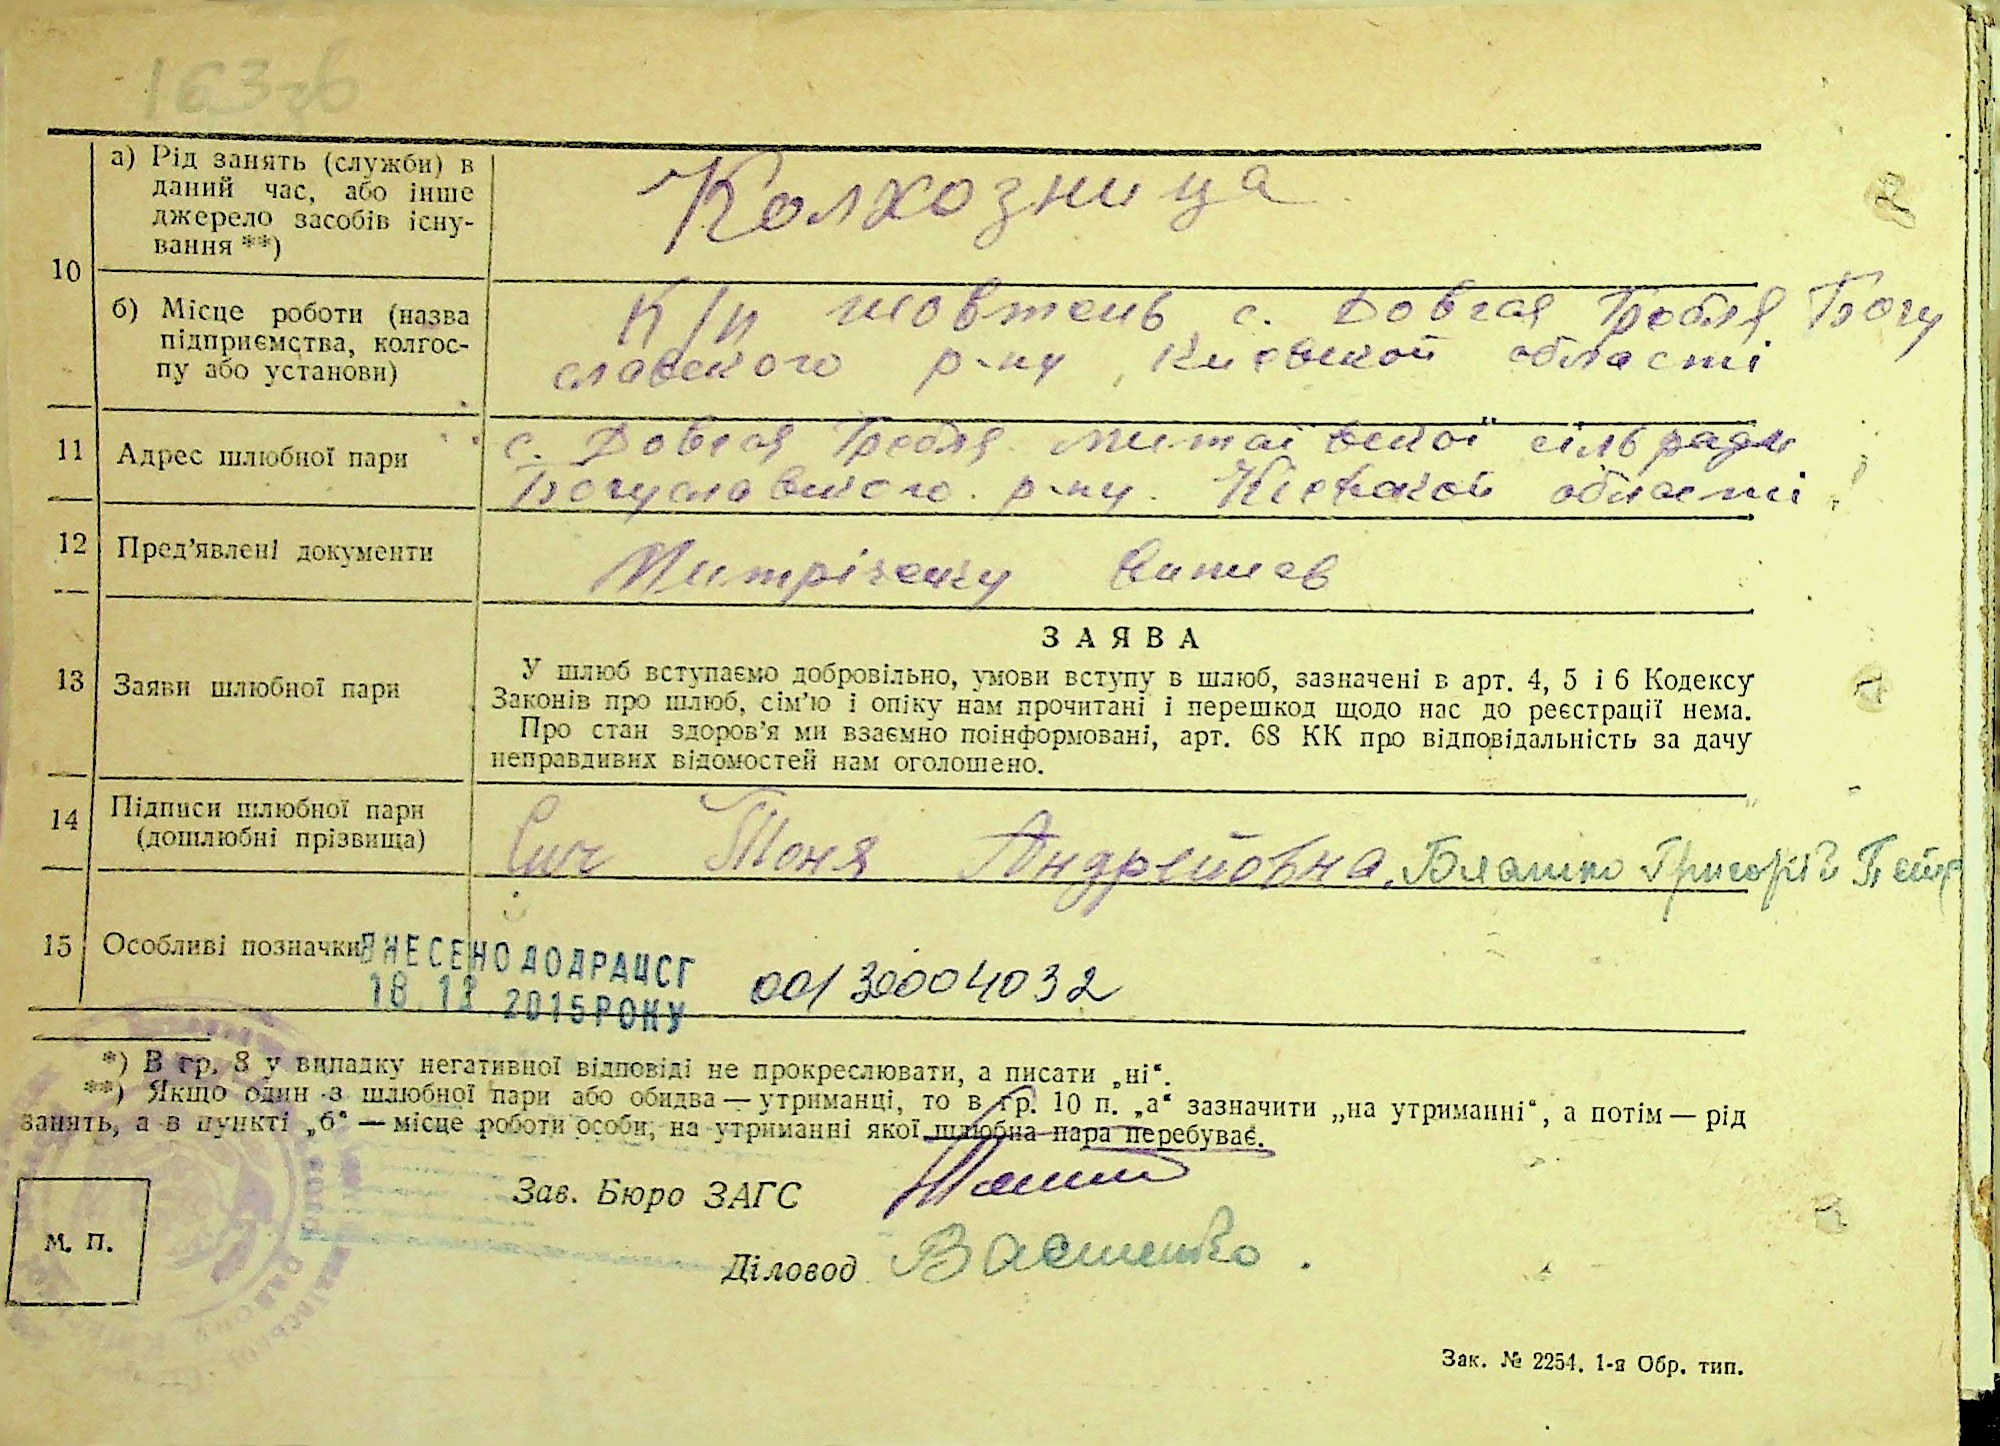 163
а) Рід занять (служби) в
даний час, або інше
джерело засобів існу-
вання **)
Колхозница
10
б) Місце роботи (назва
підприємства, колгос-
пу або установи)
К/п жовтень с. Довгая Гребля Богу
славского р-ну, Киевской області
11
Адрес шлюбної пари
с. Довгая Гребля митаївской сільради
Богуславского р-ну. Киевской області
12
Пред'явлені документи
13
Заяви шлюбної пари
ЗАЯВА
У шлюб вступаємо добровільно, умови вступу в шлюб, зазначені в арт. 4, 5 і 6 Кодексу
Законів про шлюб, сім'ю і опіку нам прочитані і перешкод щодо нас до реєстрації нема.
Про стан здоров'я ми взаємно поінформовані, арт. 68 КК про відповідальність за дачу
неправдивих відомостей нам оголошено.
14
Підписи шлюбної пари
(дошлюбні прізвища)
Сич Тоня Андрейовна, Бляшко Григорій Петр
15
Особливі позначки
ВНЕСЕНО ДО ДРАЦСГ
18 12 2015 РОКУ
00130004032
*) В гр. 8 у випадку негативної відповіді не прокреслювати, а писати „ні“.
**) Якщо один з шлюбної пари або обидва — утриманці, то в гр. 10 п. „а“ зазначити „на утриманні“, а потім — рід
занять, а в пункті „б“ — місце роботи особи, на утриманні якої шлюбна пара перебуває.
Зав. Бюро ЗАГС
М. П.
Діловод
Зак. № 2254. 1-я Обр. тип.